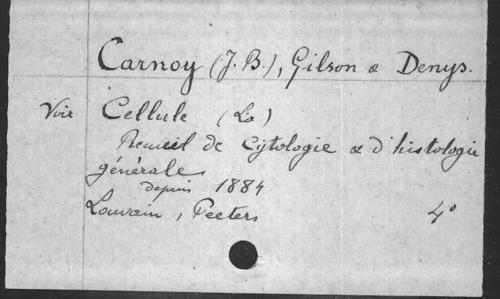 Carnoy (J. B.), Gilson & Denys.
Voir Cellule (La)
Recueil de Cytologie & d'histologie
générale
depuis 1884
Louvain, Peeters 4°